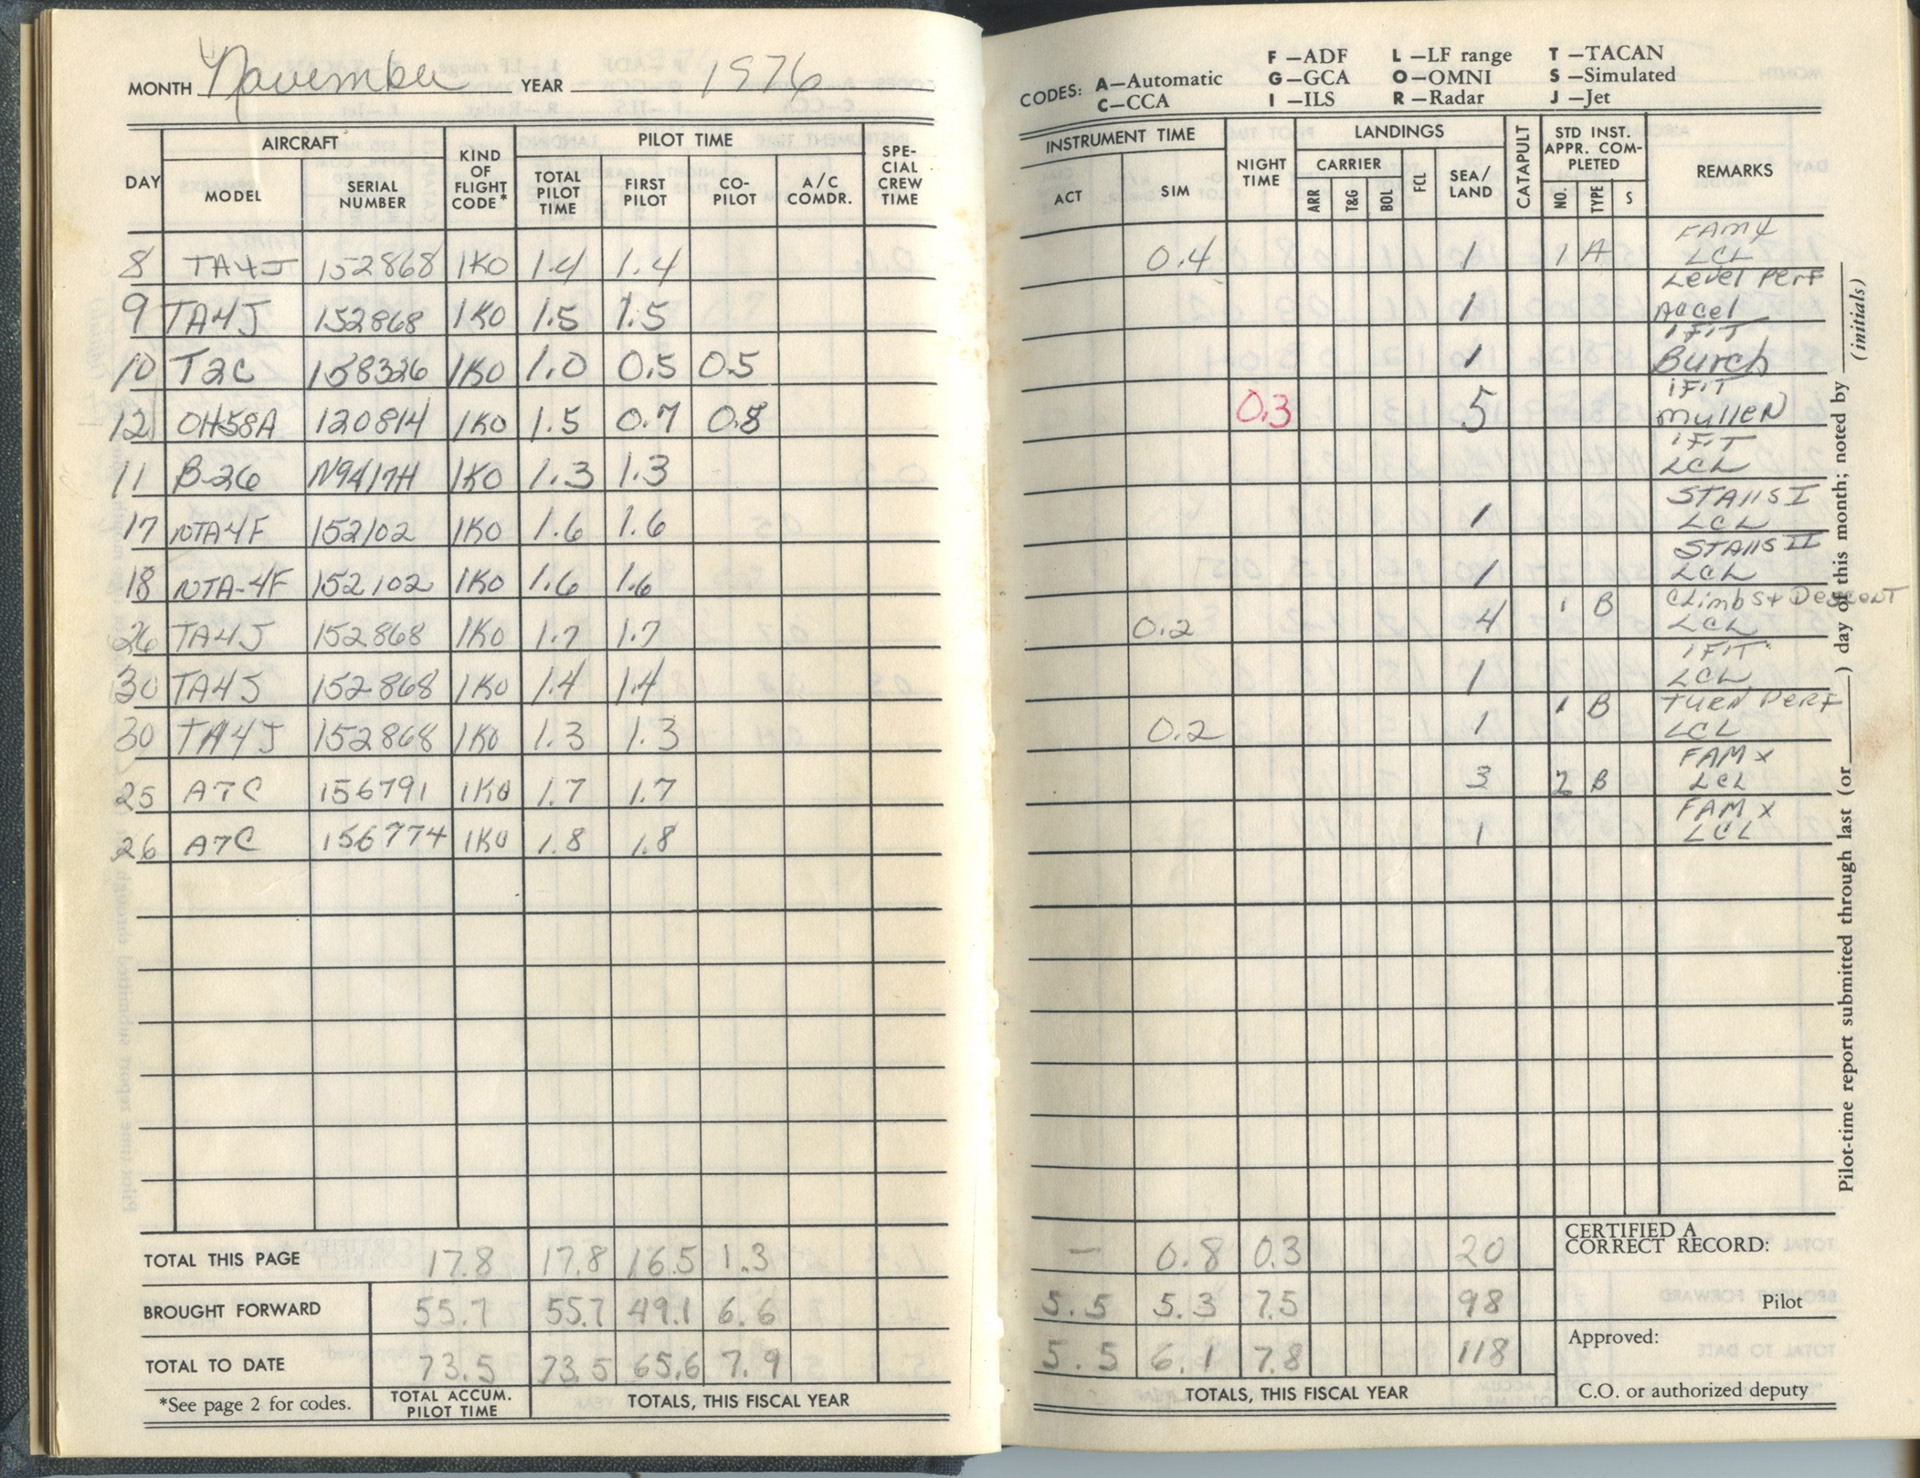 MONTH November YEAR 1976
AIRCRAFT PILOT TIME
DAY MODEL SERIAL NUMBER KIND OF FLIGHT CODE* TOTAL PILOT TIME FIRST PILOT CO-PILOT A/C COMDR. SPE-CIAL CREW TIME
8 TA4J 152868 1K0 1.4 1.4
9 TA4J 152868 1K0 1.5 1.5
10 T2C 158326 1K0 1.0 0.5 0.5
12 OH58A 120814 1K0 1.5 0.7 0.8
11 B-26 N9417H 1K0 1.3 1.3
17 NTA4F 152102 1K0 1.6 1.6
18 NTA-4F 152102 1K0 1.6 1.6
26 TA4J 152868 1K0 1.7 1.7
30 TA4J 152868 1K0 1.4 1.4
30 TA4J 152868 1K0 1.3 1.3
25 A7C 156791 1K0 1.7 1.7
26 A7C 156774 1K0 1.8 1.8
TOTAL THIS PAGE 17.8 17.8 16.5 1.3
BROUGHT FORWARD 55.7 55.7 49.1 6.6
TOTAL TO DATE 73.5 73.5 65.6 7.9
*See page 2 for codes. TOTAL ACCUM. PILOT TIME TOTALS, THIS FISCAL YEAR
CODES: A—Automatic F—ADF L—LF range T—TACAN
C—CCA G—GCA O—OMNI S—Simulated
I—ILS R—Radar J—Jet
INSTRUMENT TIME NIGHT TIME LANDINGS CATAPULT STD INST. APPR. COM-PLETED REMARKS
ACT SIM CARRIER ARR T&G BOL FCL SEA/LAND NO. TYPE S
FAM X
0.4 1 1 A LCL
Level Perf
1 Accel
IFIT
1 Burch
IFIT
0.3 5 Mullen
IFIT
LCL
Stalls I
1 LCL
Stalls II
1 LCL
1 B Climbs & Descent
0.2 4 LCL
IFIT
1 LCL
1 B Turn Perf
0.2 1 LCL
FAM X
3 2 B LCL
FAM X
1 LCL
— 0.8 0.3 20
5.5 5.3 7.5 98
5.5 6.1 7.8 118
TOTALS, THIS FISCAL YEAR
CERTIFIED A CORRECT RECORD:
Pilot
Approved:
C.O. or authorized deputy
Pilot-time report submitted through last (or ____) day of this month; noted by ____ (initials)